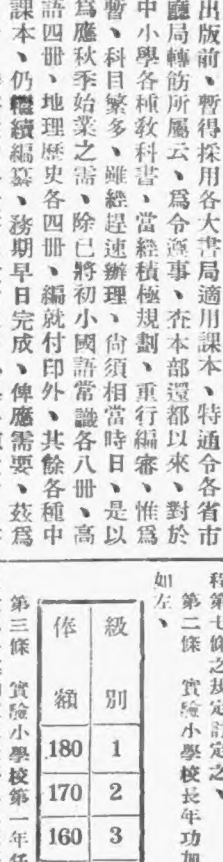 出版前、暫得採用各大書局適用課本、特通令各省市
廳局轉筋所屬云、爲令遵事、查本部還都以來、對於
中小學各種教科書、當經積極規劃、重行編審、惟爲
暫、科目繁多、雖經趕速辦理、尙須相當時日、是以
爲應秋季始業之需、除已將初小國語常識各八冊、高
語四冊、地理歷史各四冊、編就付印外、其餘各種中
課本、仍繼續編纂、務期早日完成、俾應需要、茲爲
程第七條之規定訂定之、
第二條 實驗小學校長年功加
如左、
級別 1 2 3
俸額 180 170 160
第三條 實驗小學校第一年任